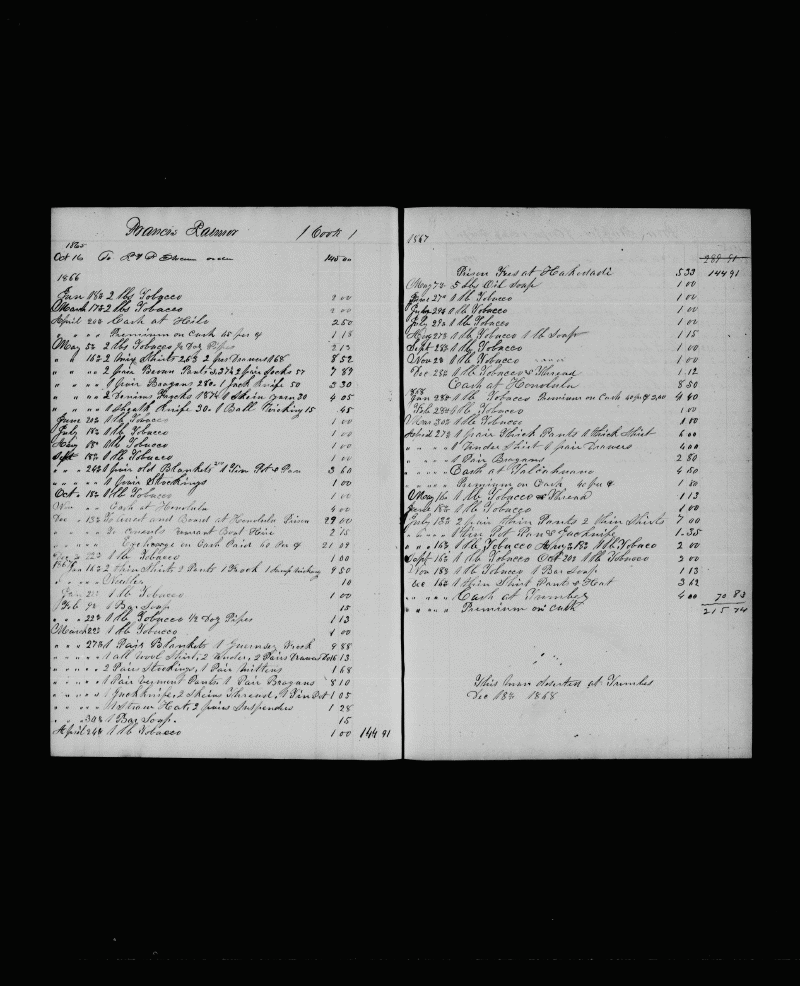 Francis Palmer 1 Cook 1
1865
Oct 16 To order 145 00
1866
Jan 18th 2 lbs Tobacco 2 00
March 17th 2 lbs Tobacco 2 00
April 20th Cash at Hilo 2 50
" " " Premium on Cash 45 per ct 1 13
May 5th 2 lbs Tobacco ½ Doz Pipes 2 13
" " 16th 2 Shirts 2 pr Drawers 8 52
" " " 2 pair Brown Pants 2 pair Socks 57 7 89
" " " 1 pair Brogans 280. 1 Jack Knife 50 3 30
" " " 2 Frocks 1 Skein yarn 30 4 05
" " " 1 Sheath Knife 30. 1 Ball Wicking 15 45
June 20th 1 lb Tobacco 1 00
July 18th 1 lb Tobacco 1 00
Aug 15th 1 lb Tobacco 1 00
Sept 18th 1 lb Tobacco 1 00
" " 24th 1 pair old Blankets 1 Tin Pot & Pan 3 60
" " " 1 pair Stockings 1 00
Oct. 18th 1 lb Tobacco 1 00
Nov " " Cash at Honolulu 4 00
Dec " 13th To and Board at Honolulu Prison 29 00
" " " To warrant Boat Hire 2 75
" " " Exchange on Cash Paid 60 Per ct 21 09
Dec " 22d 1 lb Tobacco 1 00
1867 Jan 16th 2 Thin Shirts 2 Pants 1 Frock 1 9 50
" " " " Needles 10
Jan 21st 1 lb Tobacco 1 00
Feb 7th 1 Bar Soap 15
" " 22d 1 lb Tobacco ½ Doz Pipes 1 13
March 22d 1 lb Tobacco 1 00
" " 27th 1 Pair Blankets 1 Guernsey Frock 9 88
" " " 1 all wool Shirt, 2 Under, 2 Pairs Drawers 13
" " " 2 Pair Stockings, 1 Pair Mittens 1 68
" " " 1 Pair Pants, 1 Pair Brogans 8 10
" " " 1 Jackknife, 2 Skeins Thread, 1 Tin Pot 1 05
" " " 1 Straw Hat, 2 pairs Suspenders 1 28
" " 30th 1 Bar Soap. 15
April 24th 1 lb Tobacco 1 00 144 91
1867
289 91
Prison Fees at Hakodadi 5 33 144 91
May 7th 5 lbs Oil Soap 1 00
June 27th 1 lb Tobacco 1 00
July 29th 1 lb Tobacco 1 00
July 27th 1 lb Tobacco 1 00
Aug 27th 1 lb Tobacco 1 lb Soap 1 15
Sept 28th 1 lb Tobacco 1 00
Nov 2d 1 lb Tobacco 1 00
Dec 25th 1 lb Tobacco & Thread 1 12
Cash at Honolulu 8 50
1868
Jan 28th 1 lb Tobacco Premium on Cash 40 per ct 4 40
Feb 28th 1 lb Tobacco 1 00
Mar 30th 1 lb Tobacco 1 00
April 27th 1 pair Thick Pants 1 Thick Shirt 6 00
" " " " 1 Under Shirt 1 pair Drawers 4 00
" " " " 1 Pair Brogans 2 80
" " " " Cash at Talcahuano 4 50
" " " " Premium on Cash 40 per ct 1 80
May 16th 1 lb Tobacco & Thread 1 13
June 18th 1 lb Tobacco 1 00
July 13th 2 pair Thin Pants 2 Thin Shirts 7 00
" " " " 1 Tin Pot Pan & Jacknife 1.35
" " 16th 1 lb Tobacco Aug 18th 1 lb Tobaco 2 00
Sept 16th 1 lb Tobacco Oct 20th 1 lb Tobacco 2 00
Nov 18th 1 lb Tobacco 1 Bar Soap 1 13
Dec 16th 1 Thin Shirt Pants & Hat 3 62
" " " " Cash at Tumbez 4 00 70 83
" " " " Premium on Cash 215 74
This man deserted at Tumbes
Dec 18th 1868